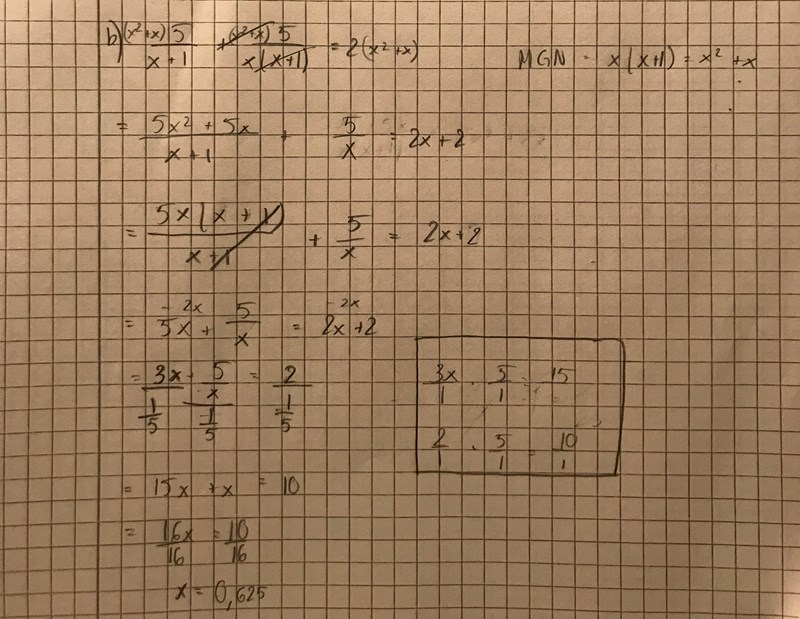 b) (x²+x)5/x+1 + (x²+x)5/x(x+1) = 2(x²+x) MGN = x(x+1) = x²+x
= 5x²+5x/x+1 + 5/x = 2x+2
= 5x(x+1)/x+1 + 5/x = 2x+2
= -2x 5x + 5/x = -2x 2x+2
= 3x/(1/5) + (5/x)/(1/5) = 2/(1/5)
3x/1 · 5/1 = 15
2/1 · 5/1 = 10/1
= 15x + x = 10
= 16x/16 = 10/16
x = 0,625